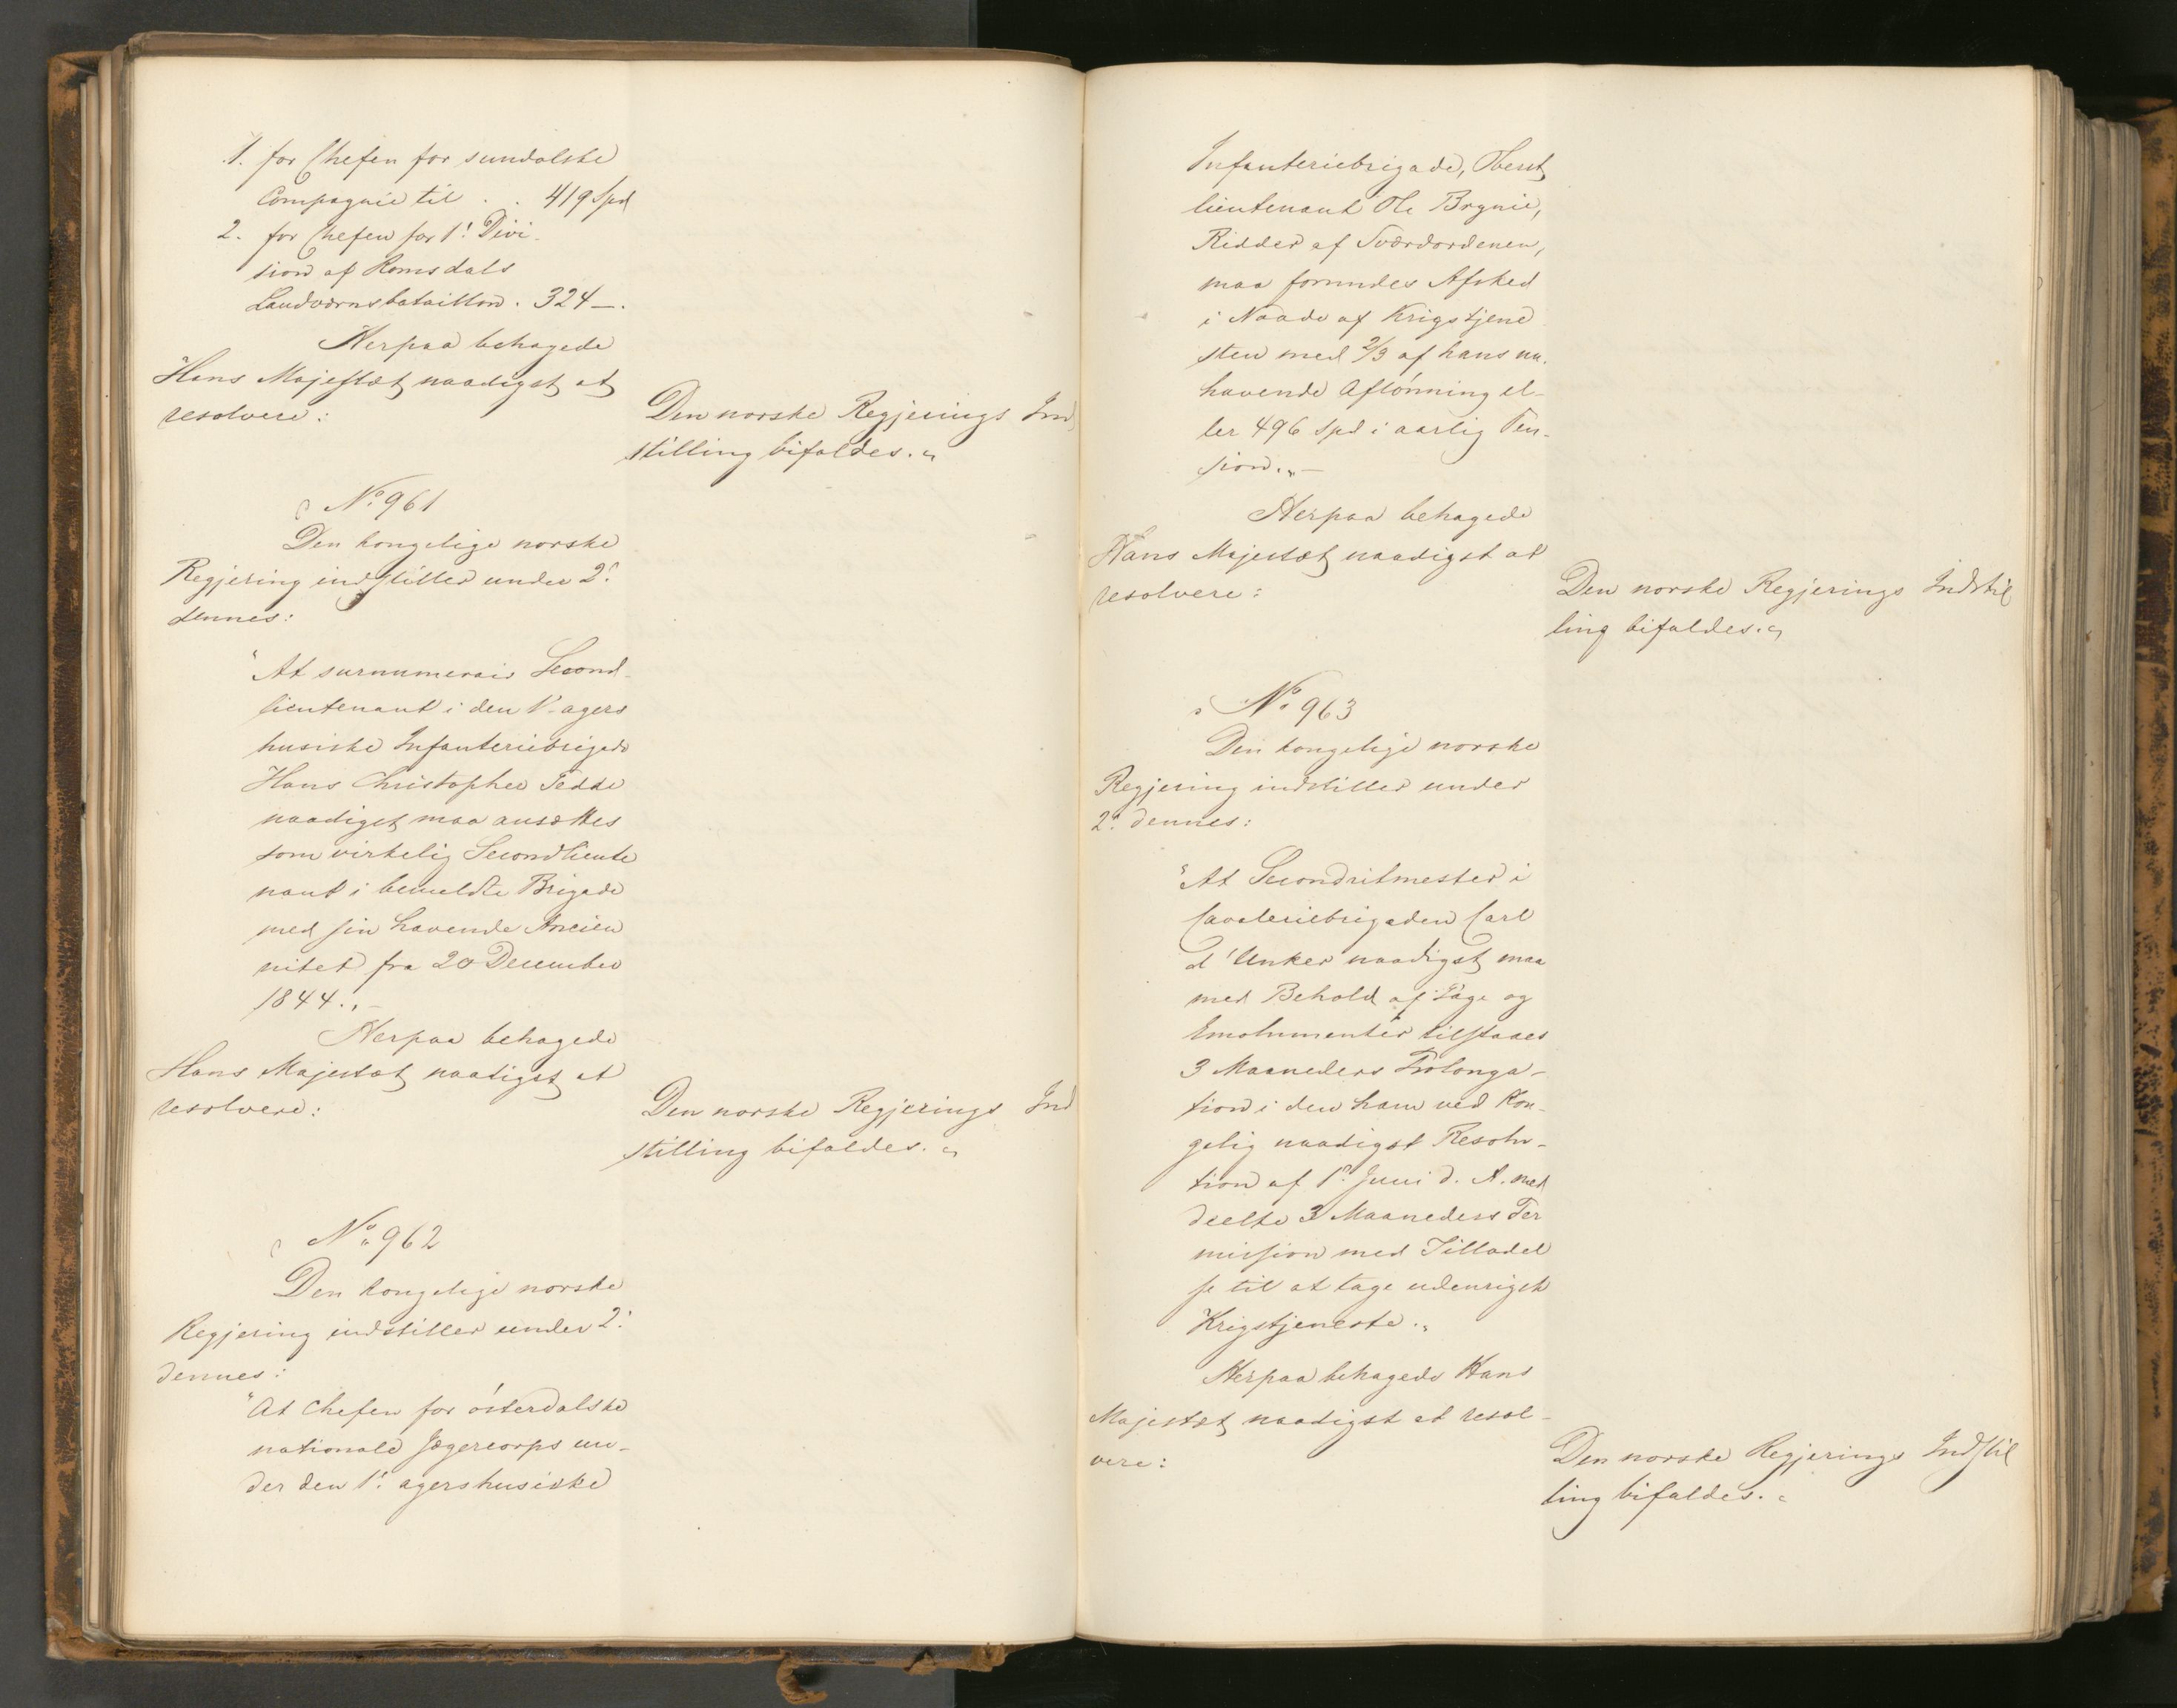 1. for Chefen for sundalske
Compagnie til . . 419 Spd
2. for Chefen for 1ste Divi-
sion af Romsdals
Landværnsbataillon. 324 –.
Herpaa behagede
Hans Majestæt naadigst at
resolvere:
Den norske Regjerings Ind
stilling bifaldes."
No. 961
Den kongelige norske
Regjering indstiller under 2.
dennes:
"At surnumerair Second-
lieutenant i den 1. agers
husiske Infanteriebrigade
Hans Christopher
naadigst maa ansættes
som virkelig Secondlieute
nant i bemeldte Brigade
med sin havende Ancien
nitet fra 20 December
1844.„–
Herpaa behagede
Hans Majestæt naadigst at
resolvere:
Den norske Regjerings Ind
stilling bifaldes."
No. 962
Den kongelige norske
Regjering indstiller under 2.
dennes:
"At Chefen for österdalske
nationale Jægercorps un-
der den 1. agershusiske
Infanteriebrigade, Oberst
lieutenant Ole Brynie,
Ridder af Sværdordenen,
maa forundes Afsked
i Naade af Krigstjene
sten med 2/3 af hans nu-
havende Aflönning el-
ler 496 Spd i aarlig Pen-
sion.„–
Herpaa behagede
Hans Majestæt naadigst at
resolvere:
Den norske Regjerings Indstil
ling bifaldes."
No. 963
Den kongelige norske
Regjering indstiller under
2. dennes:
"At Secondritmester i
Cavaleriebrigaden Carl
d'Unker naadigst maa
med Behold af Gage og
Emolumenter tilstaaes
3 Maaneders Prolonga-
tion i den ham ved Kon-
gelig naadigst Resolu-
tion af 1. Juni d. A. med
deelte 3 Maaneders Per
mission med Tilladel
se til at tage udenrigsk
Krigstjeneste.„
Herpaa behagede Hans
Majestæt naadigst at resol-
vere:
Den norske Regjerings Indstil
ling bifaldes."